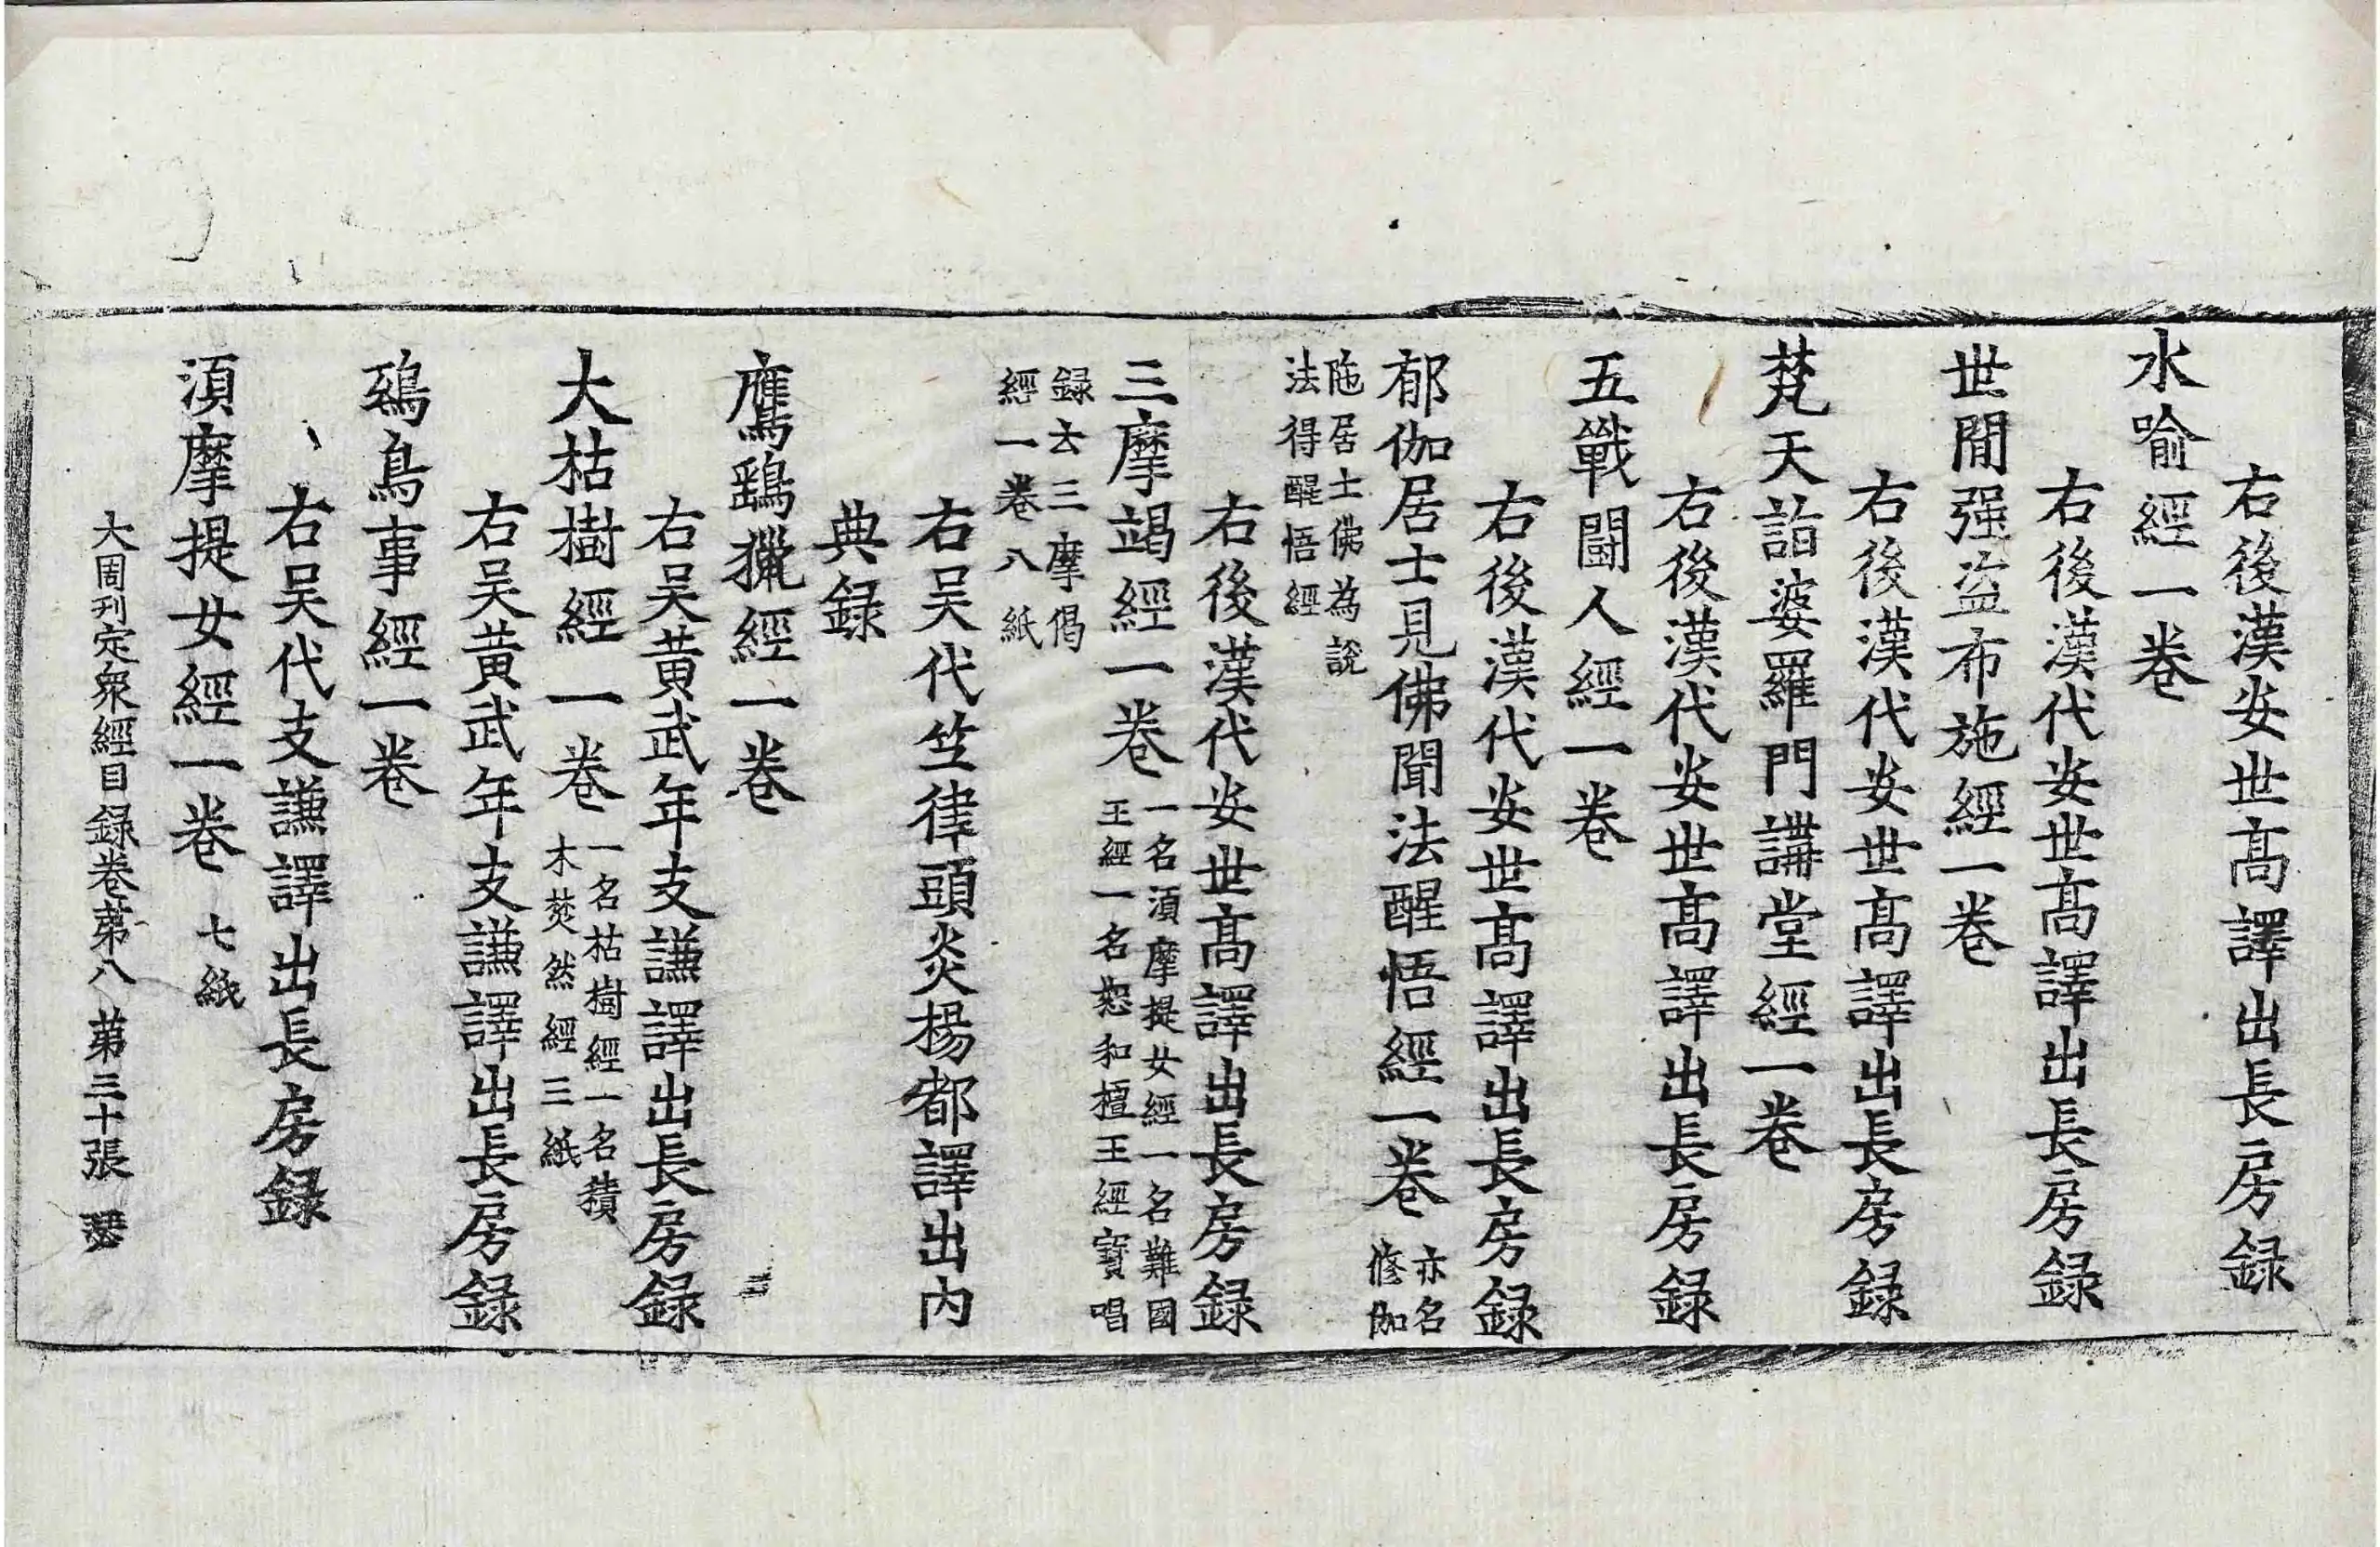 右後漢安世高譯出長房録
水喻經一卷
右後漢代安世高譯出長房録
世閒强盗布施經一卷
右後漢代安世高譯出長房録
梵天詣婆羅門講堂經一卷
右後漢代安世高譯出長房録
五戰鬪人經一卷
右後漢代安世高譯出長房録
郁伽居士見佛聞法醒悟經一卷
亦名修伽
陁居士佛為說
法得醒悟經
右後漢代安世高譯出長房録
三摩竭經一卷
一名湏摩提女經一名難國
王經一名恕和檀王經寶唱
録云三摩偈
經一卷八紙
右吴代竺律頭炎楊都譯出內
典録
鷹鷂獵經一卷
右吴黄武年支謙譯出長房録
大枯樹經一卷
一名枯樹經一名積
木焚然經三紙
右吴黄武年支謙譯出長房録
鵶鳥事經一卷
右吴代支謙譯出長房録
湏摩提女經一卷 七紙
大周刊定衆經目録卷苐八 苐三十張